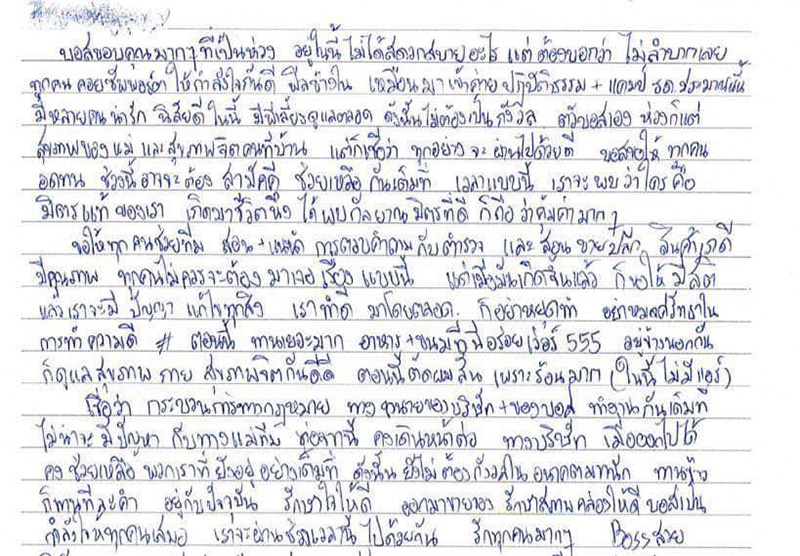 บอสขอบคุณมากๆ ที่เป็นห่วง อยู่ในนี้ ไม่ได้สะดวกสบายอะไร แต่ต้องบอกว่า ไม่ลำบากเลย
ทุกคน คอยซัพพอร์ต ให้กำลังใจกันดี ฟีลข้างใน เหมือนมาเข้าค่าย ปฏิบัติธรรม + แคมป์ รด. ประมาณนั้น
มีหลายคน น่ารัก นิสัยดี ในนี้ มีพี่เลี้ยงดูแลตลอด ดังนั้นไม่ต้องเป็นกังวล ตัวบอสเอง ห่วงก็แต่
สุขภาพของแม่ และสุขภาพจิตคนที่บ้าน แต่ก็เชื่อว่า ทุกอย่าง จะผ่านไปด้วยดี บอสขอให้ ทุกคน
อดทน ช่วงนี้อาจจะต้อง สามัคคี ช่วยเหลือกันเต็มที่ เวลาแบบนี้ เราจะพบว่าใคร คือ
มิตรแท้ ของเรา เกิดมาชีวิตนึง ได้พบกัลยาณมิตรที่ดี ก็ถือว่าคุ้มค่ามากๆ
ขอให้ทุกคนช่วยทีม สอน + แนะนำ การตอบคำถามกับตำรวจ และ สอนขายปลีก สินค้าเราดี
มีคุณภาพ ทุกคนไม่ควรจะต้อง มาเจอเรื่องแบบนี้ แต่เมื่อมันเกิดขึ้นแล้ว ก็ขอให้ มีสติ
แล้วเราจะมี ปัญญา แก้ไขทุกสิ่ง เราทำดี มาโดยตลอด ก็อย่าหยุดทำ อย่าหมดศรัทธาใน
การทำความดี # ตอนนี้ ทานเยอะมาก อาหาร + ขนมที่นี่อร่อยเว่อร์ 555 อยู่ข้างนอกกัน
ก็ดูแลสุขภาพ กาย สุขภาพจิตกันดีดี ตอนนี้ตัดผมสั้น เพราะร้อนมาก (ในนี้ไม่มีแอร์)
เชื่อว่า กระบวนการทางกฎหมาย ทางทนายของบริษัท + ของบอส ทำงานกันเต็มที่
ไม่น่าจะมีปัญหา กับทางแม่ทีม คงเดินหน้าต่อ ทางบริษัท เมื่อออกไปได้
คงช่วยเหลือ พวกเราที่ยังอยู่ อย่างเต็มที่ ดังนั้น ยังไม่ต้องกังวลในอนาคตมากนัก ทานข้าว
ก็ทานทีละคำ อยู่กับปัจจุบัน รักษาใจให้ดี ออกมาขายของ รักษาสภาพคล่องให้ดี บอสเป็น
กำลังใจให้ทุกคนเสมอ เราจะผ่านช่วงเวลานี้ ไปด้วยกัน รักทุกคนมากๆ Bossสวย